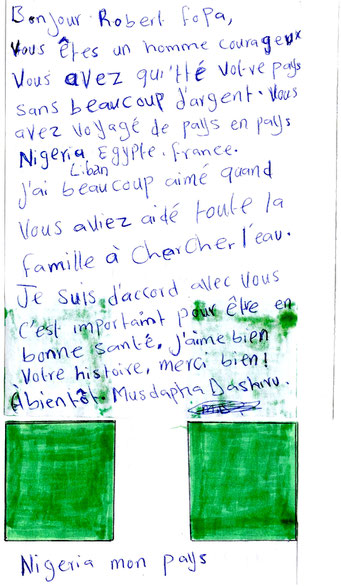 Bonjour Robert Fopa,
Vous êtes un homme courageux
Vous avez qui'tté Votre pays
sans beaucoup d'argent. Vous
avez voyagé de pays en pays
Nigeria Egypte. france.
Liban
j'ai beaucoup aimé quand
Vous aviez aidé toute la
famille à chercher l'eau.
Je suis d'accord avec vous
C'est important pour être en
bonne santé, j'aime bien
Votre histoire, merci bien!
À bientôt. Musdapha Dashiru.
Nigeria mon pays